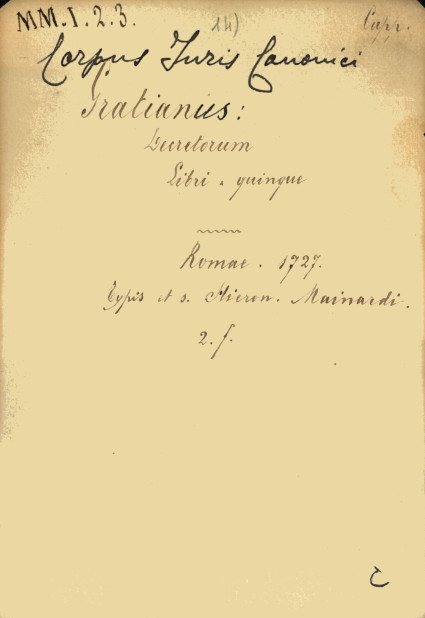 MM. I. 2. 3. 14) Capp.
Corpus Juris Canonici
Gratianus:
Decretorum
Libri quinque
Romae. 1727.
Typis et s. Hieron. Mainardi.
2. f.